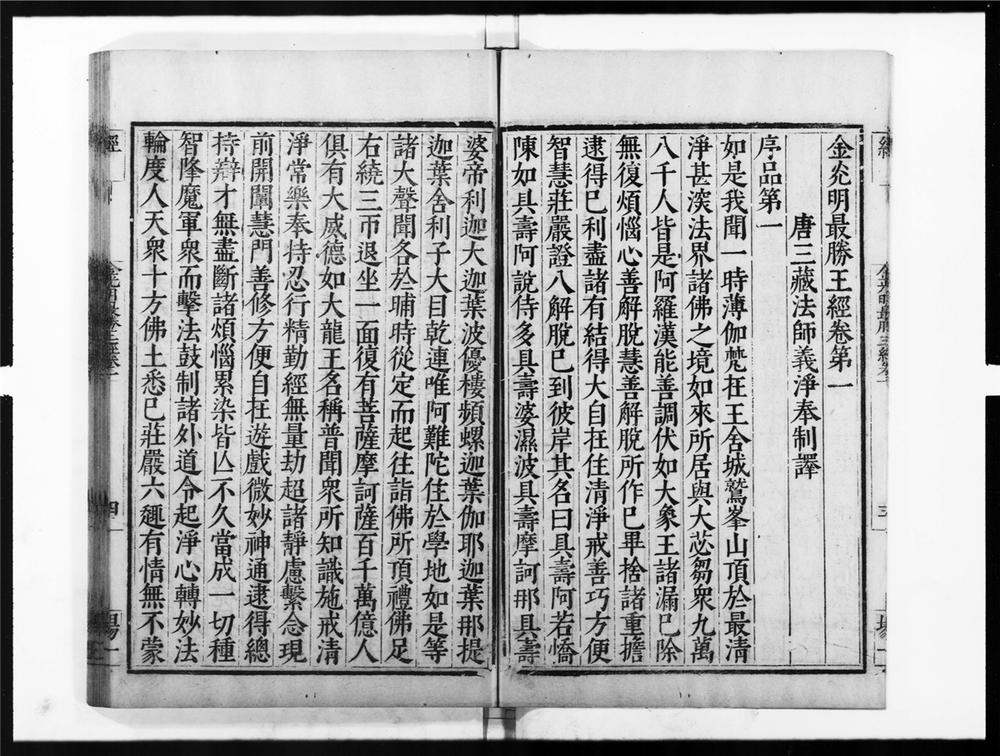 金炎明最勝王經卷第一
唐三藏法師義淨奉制譯
序品第一
如是我聞一時薄伽梵在王舍城鷲峯山頂於最清
淨甚深法界諸佛之境如來所居與大苾芻衆九萬
八千人皆是阿羅漢能善調伏如大象王諸漏已除
無復煩惱心善解脫慧善解脫所作已畢捨諸重擔
逮得已利盡諸有結得大自在住清淨戒善巧方便
智慧莊嚴證八解脫已到彼岸其名曰具壽阿若憍
陳如具壽阿說侍多具壽婆濕波具壽摩訶那具壽
婆帝利迦大迦葉波優樓頻螺迦葉伽耶迦葉那提
迦葉舍利子大目乾連唯阿難陀住於學地如是等
諸大聲聞各於晡時從定而起往詣佛所頂禮佛足
右繞三帀退坐一面復有菩薩摩訶薩百千萬億人
俱有大威德如大龍王名稱普聞衆所知識施戒清
淨常樂奉持忍行精勤經無量劫超諸靜慮繫念現
前開闡慧門善修方便自在遊戲微妙神通逮得總
持辯才無盡斷諸煩惱累染皆亾不久當成一切種
智隆魔軍衆而擊法鼓制諸外道令起淨心轉妙法
輪度人天衆十方佛土悉已莊嚴六趣有情無不蒙